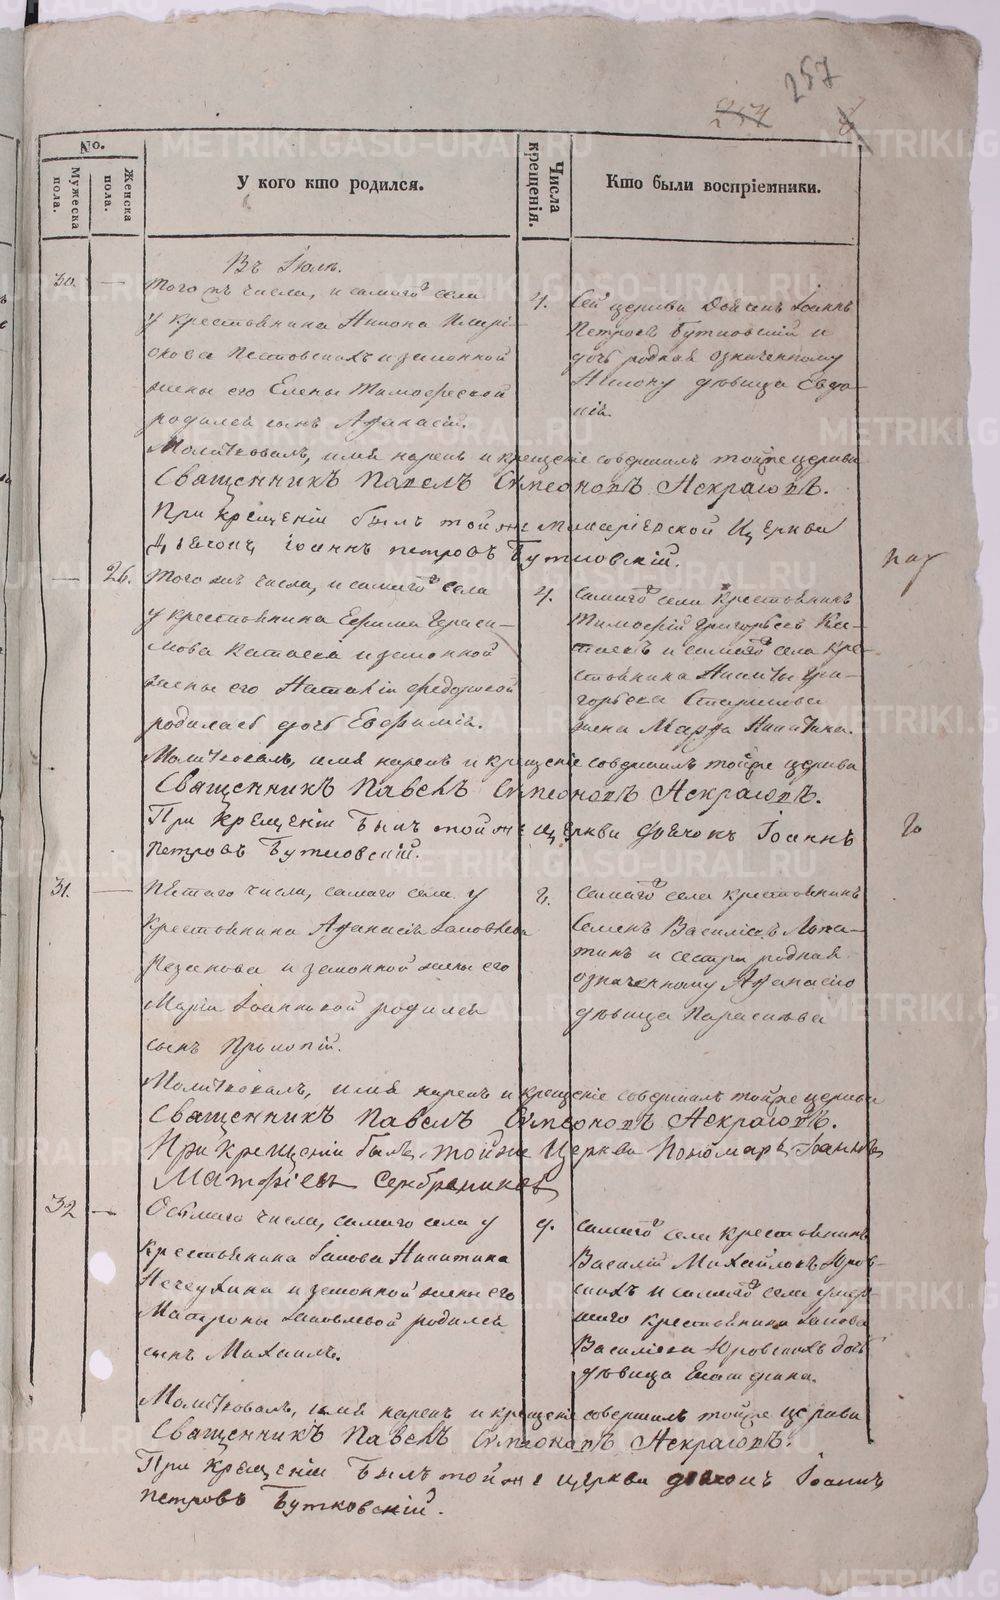 257
No.
Мужеска пола.
Женска пола.
У кого кто родился.
Числа крещенія.
Кто были воспріемники.
Въ Іюлѣ.
30.
Того жъ числа, и самаго села
у крестьянина
и законной
жены его Елены Тимофеевой
родился сынъ Афанасій.
4.
Сей церкви Дьячекъ Іоаннъ
Петровъ Бутковскій и
дочь родная означенному
дѣвица Евдо-
кія.
Молитвовалъ, имя нарекъ и крещеніе совершилъ тойже церкви
Священникъ Павелъ Симеоновъ
При крещеніи былъ той же Церкви
Дьячокъ Іоаннъ Петровъ Бутковскій.
26.
Того жъ числа, и самаго села
у крестьянина Ефима Гераси-
мова и законной
жены его Наталіи Федоровой
родилась дочь Евфимія.
4.
Самаго села крестьянинъ
Тимофей Григорьевъ
и самаго села кре-
стьянина Никиты Гри-
горьева
жена Марфа Никитина.
Молитвовалъ, имя нарекъ и крещеніе совершилъ тойже церкви
Священникъ Павелъ Симеоновъ
При крещеніи былъ той же церкви дьячокъ Іоаннъ
Петровъ Бутковскій.
31.
Пятаго числа, самаго села у
крестьянина Афанасія Іаковлева
Резанова и законной жены его
Маріи Іоанновой родился
сынъ Прокопій.
Самаго села крестьянинъ
Семенъ Василіевъ Лопа-
тинъ и сестра родная
означенному Афанасію
дѣвица Параскева
Молитвовалъ, имя нарекъ и крещеніе совершилъ тойже церкви
Священникъ Павелъ Симеоновъ
При крещеніи былъ тойже Церкви Пономарь
Матфіевъ Серебрениковъ
32
Осьмаго числа, самаго села у
крестьянина Іакова Никитина
и законной жены его
Матроны Іаковлевой родился
сынъ Михаилъ.
9.
Самаго села крестьянинъ
Василій Михайловъ Юров-
скихъ и самаго села умер-
шаго крестьянина Іакова
Василіева Юровскихъ дочь
дѣвица Екатерина.
Молитвовалъ, имя нарекъ и крещеніе совершилъ тойже церкви
Священникъ Павелъ Симеоновъ
При крещеніи былъ той же церкви дьячокъ Іоаннъ
Петровъ Бутковскій.
METRIKI.GASO-URAL.RU